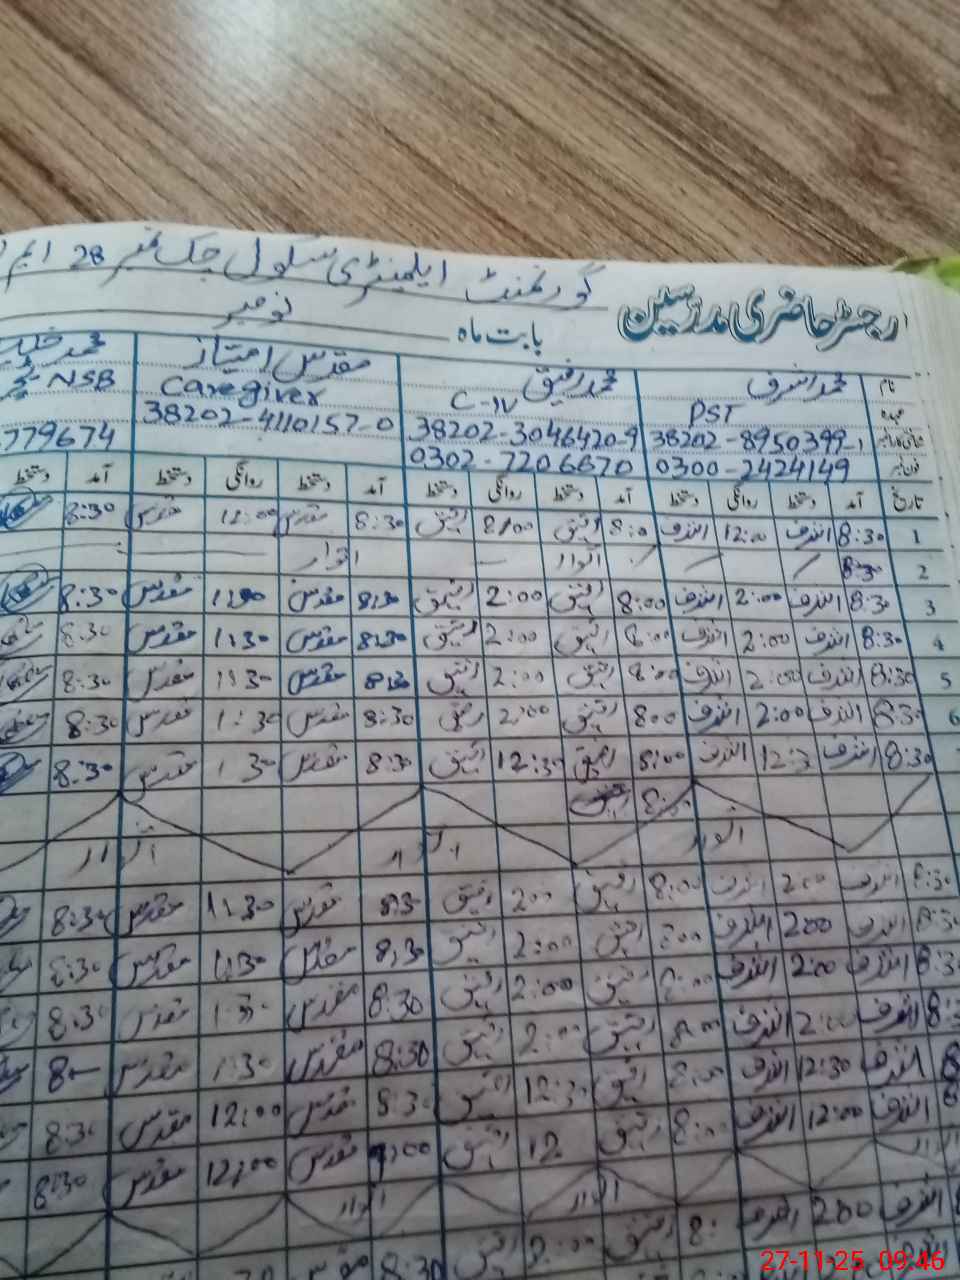 گورنمنٹ ایلیمنٹری سکول چک نمبر 28 ایم
رجسٹر حاضری مدرسین بابت ماہ نومبر
نام محمد اشرف محمد رفیق مقدس امتیاز محمد
عہدہ PST C-IV Caregiver NSB
شناختی کارڈ نمبر 38202-8950399-1 38202-3046420-9 38202-4110157-0
فون نمبر 0300-2424149 0302-7206670 779674
تاریخ آمد دستخط روانگی دستخط آمد دستخط روانگی دستخط آمد دستخط روانگی دستخط آمد دستخط
1 8:30 اشرف 12:00 اشرف 8:0 رفیق 8:00 رفیق 8:30 مقدس 12:00 مقدس 8:30
2 8:30 اتوار اتوار
3 8:30 اشرف 2:00 اشرف 8:00 رفیق 2:00 رفیق 8:30 مقدس مقدس 8:30
4 8:30 اشرف 2:00 اشرف 8:00 رفیق 2:00 رفیق 8:30 مقدس 1:30 مقدس 8:30
5 8:30 اشرف 2:00 اشرف 8:00 رفیق 2:00 رفیق 8:30 مقدس 1:30 مقدس 8:30
6 8:30 اشرف 2:00 اشرف 800 رفیق 2:00 رفیق 8:30 مقدس 1:30 مقدس 8:30
8:30 اشرف 12:3 اشرف 8:00 رفیق 12:30 رفیق 8:30 مقدس 1:30 مقدس 8:30
رفیق
اتوار اتوار اتوار
8:30 اشرف 200 اشرف 8:00 رفیق 200 رفیق 830 مقدس 1:30 مقدس 8:30
8:3 اشرف 200 اشرف 800 رفیق 2:00 رفیق 8:30 مقدس 1:30 مقدس 8:30
8:3 اشرف 2:00 اشرف 8:00 رفیق 2:00 رفیق 8:30 مقدس 1:30 مقدس 8:30
اشرف 2:00 اشرف 8:00 رفیق 2:00 رفیق 8:30 مقدس 1:30 مقدس
اشرف 12:30 اشرف 8:00 رفیق 12:30 رفیق 8:30 مقدس 12:00 مقدس 8:30
اشرف 12:00 اشرف 8:00 رفیق 12 رفیق مقدس 12:00 مقدس 8:30
اتوار اتوار اتوار
اشرف 200 اشرف 8: رفیق 2:00 رفیق 8:30 مقدس
27-11-25 09:46